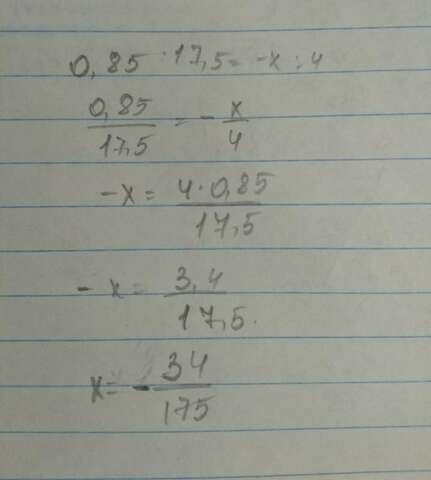 0,85 : 17,5 = -x : 4
0,85/17,5 = -x/4
-x = 4·0,85/17,5
-x = 3,4/17,5.
x = -34/175